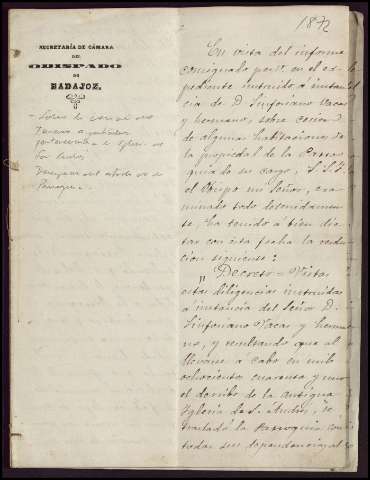 1872
SECRETARÍA DE CÁMARA
DEL
OBISPADO
DE
BADAJOZ.
Sobre la cesion de un
Terreno a particulares
perteneciente a la Iglesia de
San Andres
En vista del informe
consignado por V. en el ex-
pediente instruido á instan-
cia de D. Sinforiano Vacas
y hermano, sobre cesion
de algunas habitaciones de
la propiedad de la Parro-
quia de su cargo, S.S.I.
el Obispo mi Señor, exa-
minado todo detenidamen-
te, ha tenido á bien dic-
tar con esta fecha la resolu-
cion siguiente:
"Decreto = Vistas
estas diligencias instruidas
á instancia del Señor D.
Sinforiano Vacas y herma-
no, y resultando que al
llevarse á cabo en mil
ochocientos cuarenta y uno
el derribo de la antigua
Iglesia de S. Andrés, se
trasladó la Parroquia con
todas sus dependencias al